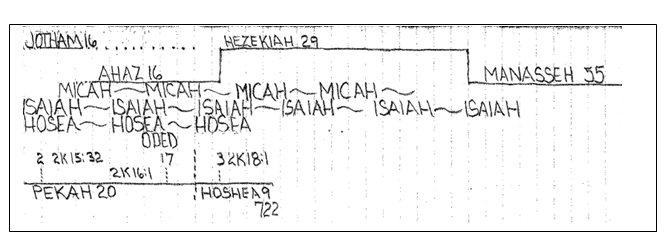 JOTHAM 16 HEZEKIAH 29
AHAZ 16 MANASSEH 55
MICAH MICAH MICAH MICAH
ISAIAH ISAIAH ISAIAH ISAIAH ISAIAH ISAIAH
HOSEA HOSEA HOSEA
ODED
2 2K15:32 17 3 2K18:1
2K16:1
PEKAH 20 HOSHEA 9
722